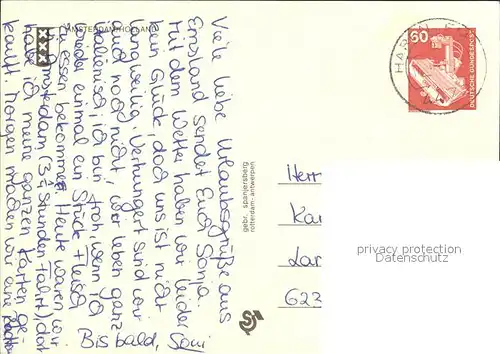 AMSTERDAM HOLLAND
Viele liebe Urlaubsgrüße aus
Emsland sendet Euch Sonja.
Mit dem Wetter haben wir leider
kein Glück, doch uns ist nicht
langweilig. Verhungert sind wir
auch noch nicht, wir leben ganz
italienisch, ich bin froh, wenn ich
wieder einmal ein Stück Fleisch
zu essen bekomme. Heute waren wir
Amsterdam (3 1/4 Stunden Fahrt), dort
habe ich meine ganzen Karten ge-
kauft. Morgen machen wir eine
Bis bald,
gebr. spanjersberg
rotterdam-antwerpen
60
DEUTSCHE BUNDESPOST
HAR
Herr
Ka
Lar
622
privacy protection
Datenschutz